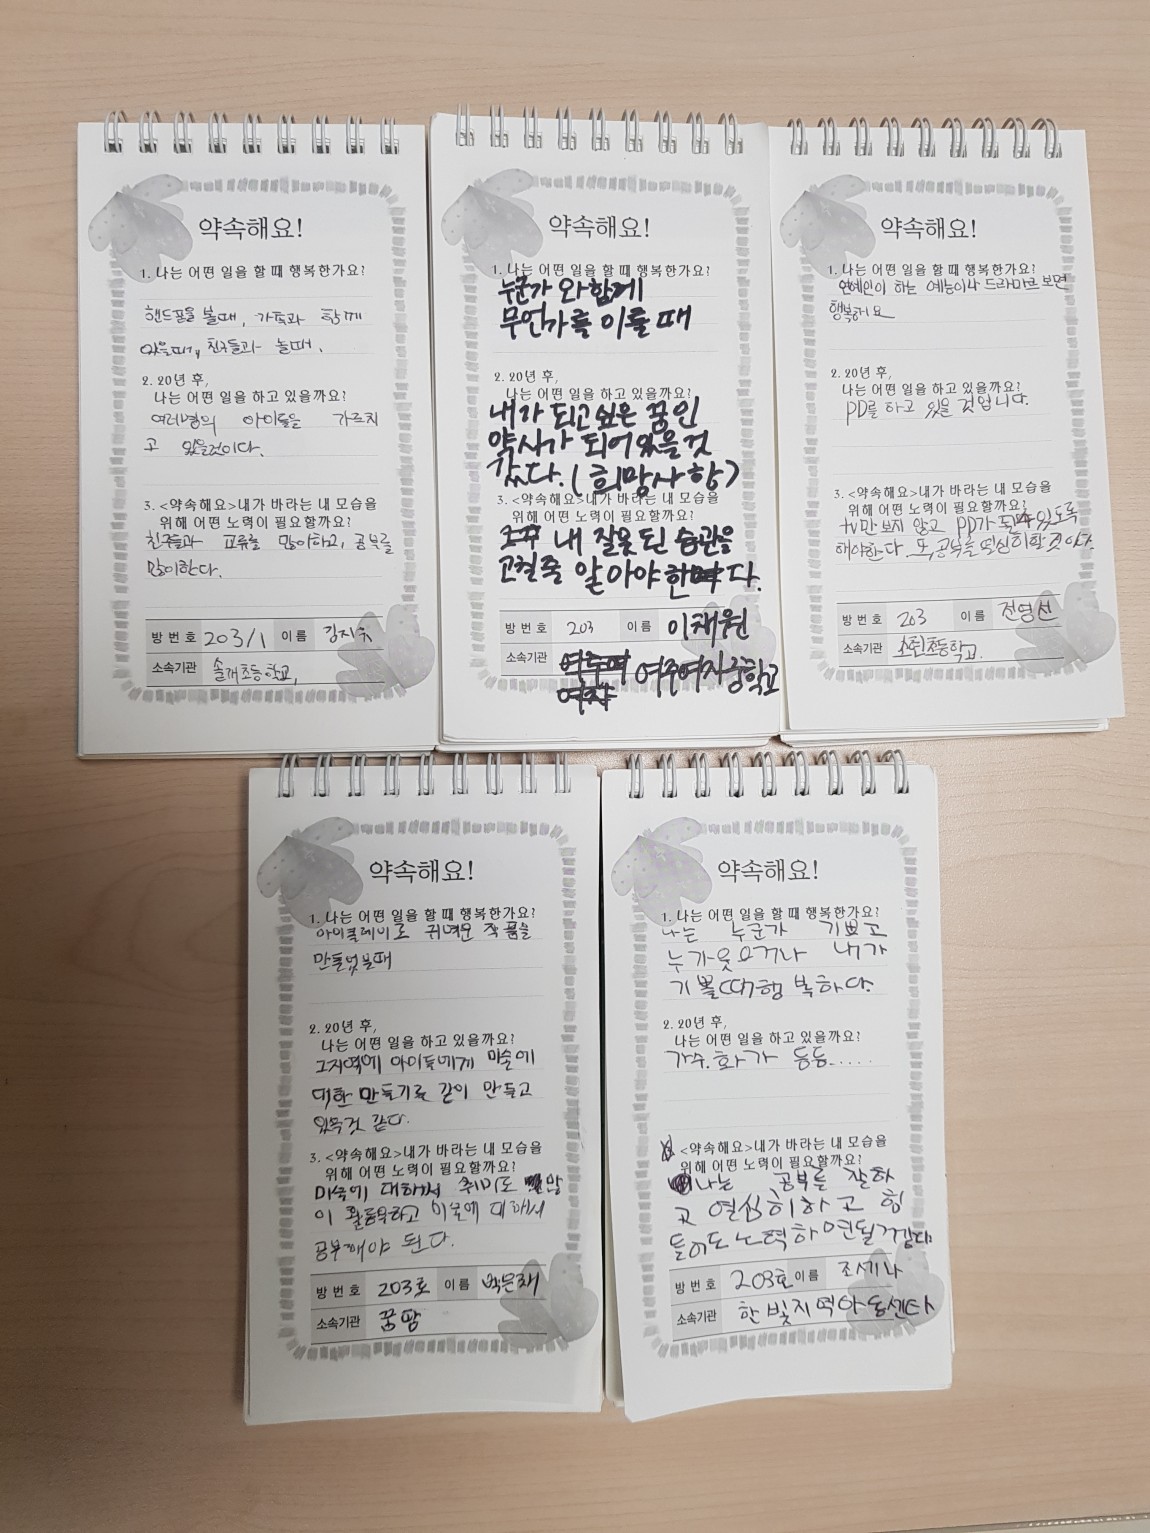 약속해요!
1. 나는 어떤 일을 할 때 행복한가요?
핸드폰을 볼때, 가족과 함께
있을때, 친구들과 놀때.
2. 20년 후,
나는 어떤 일을 하고 있을까요?
여러명의 아이들을 가르치
고 있을것이다.
3. <약속해요>내가 바라는 내 모습을
위해 어떤 노력이 필요할까요?
친구들과 교류를 많이하고, 공부를
많이한다.
방 번 호 203/1 이 름
소속기관 솔개초등학교,
약속해요!
1. 나는 어떤 일을 할 때 행복한가요?
누군가 와 함께
무언가를 이룰 때
2. 20년 후,
나는 어떤 일을 하고 있을까요?
내가 되고싶은 꿈인
약사가 되어있을것
같다. (희망사항)
3. <약속해요>내가 바라는 내 모습을
위해 어떤 노력이 필요할까요?
내 잘못된 습관을
고칠줄 알아야 한다.
방 번 호 203 이 름 이채원
소속기관 여주여자중학교
약속해요!
1. 나는 어떤 일을 할 때 행복한가요?
연예인이 하는 예능이나 드라마로 보면
행복해요
2. 20년 후,
나는 어떤 일을 하고 있을까요?
PD를 하고 있을 것입니다.
3. <약속해요>내가 바라는 내 모습을
위해 어떤 노력이 필요할까요?
tv만 보지 않고 PD가 될수있도록
해야한다. 또, 공부를 열심히할 것이다.
방 번 호 203 이 름 전영선
소속기관 초등학교.
약속해요!
1. 나는 어떤 일을 할 때 행복한가요?
아이클레이로 귀여운 작품을
만들었볼때
2. 20년 후,
나는 어떤 일을 하고 있을까요?
그지역에 아이들에게 미술에
대한 만들기를 같이 만들고
있는것 같다.
3. <약속해요>내가 바라는 내 모습을
위해 어떤 노력이 필요할까요?
미술에 대해서 취미도 많
이 활동하고 미술에 대해서
공부해야 된다.
방 번 호 203호 이 름 박은채
소속기관 꿈땅
약속해요!
1. 나는 어떤 일을 할 때 행복한가요?
나는 누군가 기쁘고
누가웃으거나 내가
기쁠때행복하다.
2. 20년 후,
나는 어떤 일을 하고 있을까요?
가수.화가 등등.....
<약속해요>내가 바라는 내 모습을
위해 어떤 노력이 필요할까요?
나는 공부를 잘하
고 열심히하고 힘
들어도 노력하면될거같다
방 번 호 203호 이 름 조세나
소속기관 한빛지역아동센타